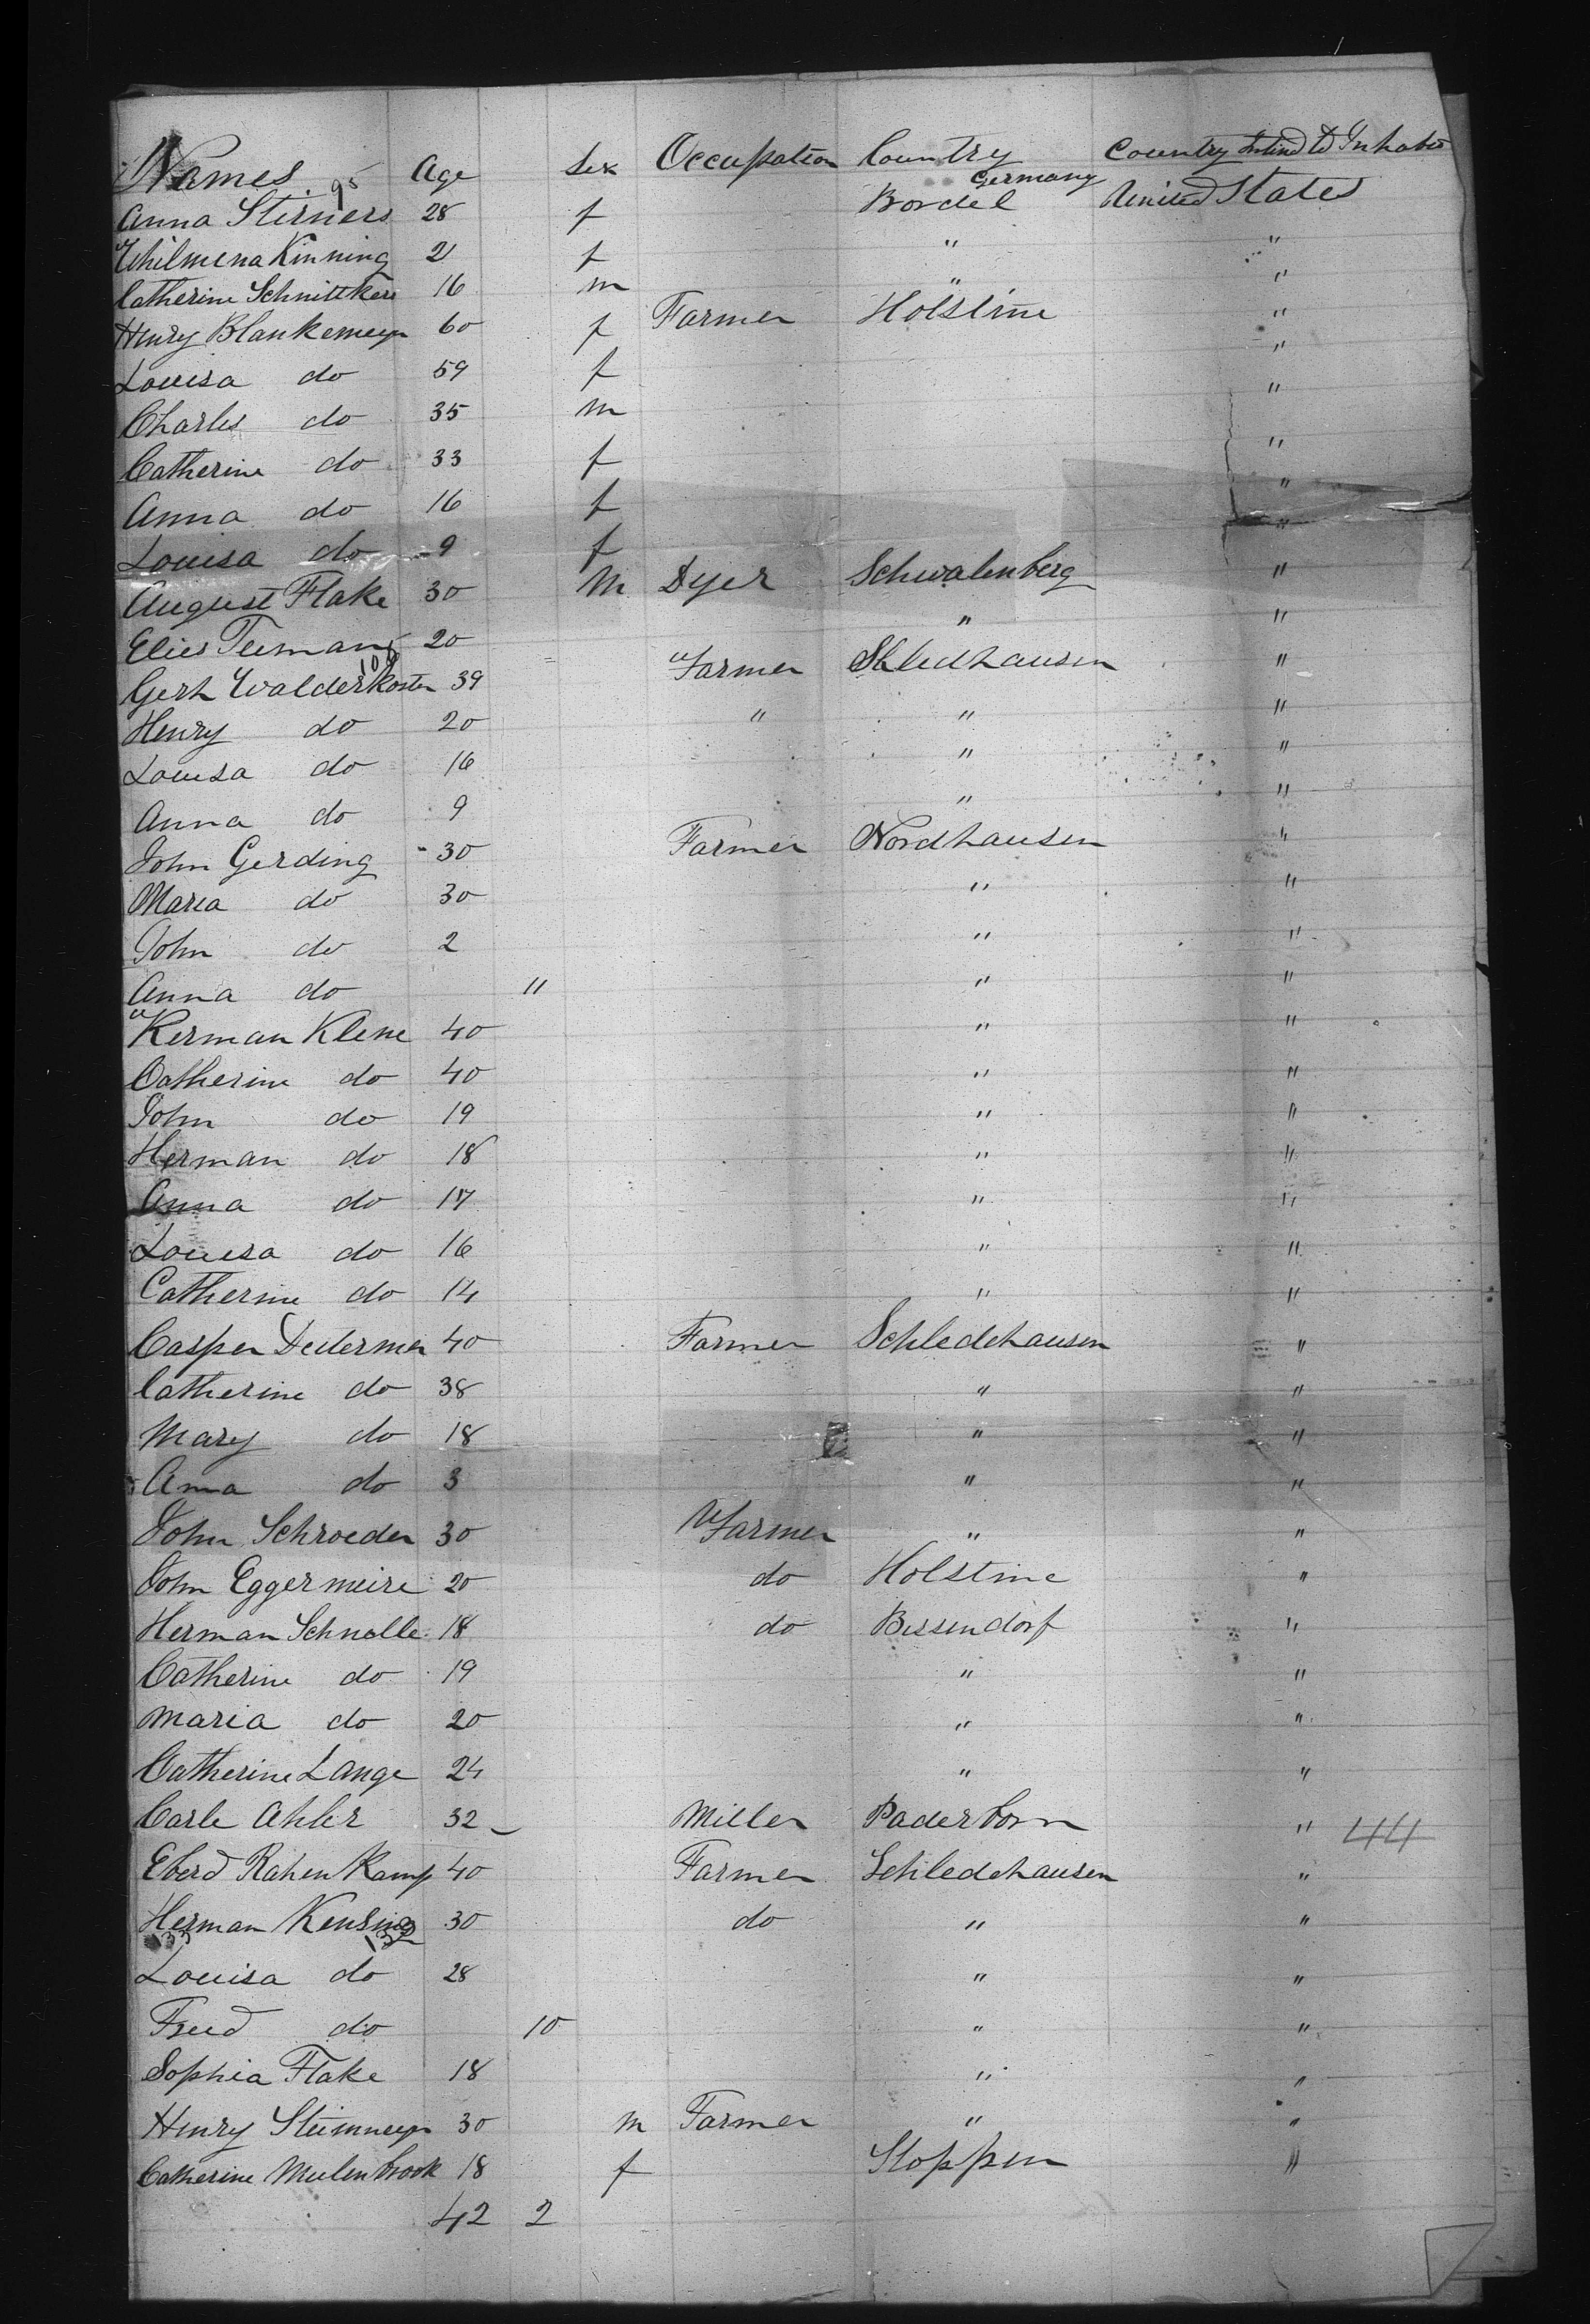 Names Age Sex Occupation Country Country Intend to Inhabit
95 Germany
Anna Sterners 28 f Bordel United States
Whilmena Kinning 21 f " "
Catherine Schnittker 16 m " "
Henry Blankemeyer 60 f Farmer Holstine "
Louisa do 59 f "
Charles do 35 m "
Catherine do 33 f "
Anna do 16 f "
Louisa do 9 f "
August Flake 30 m Dyer Schwalenberg "
Elies Teeman 20 " "
100
Gerh Walderkoster 39 Farmer Shledhausen "
Henry do 20 " " "
Louisa do 16 " "
Anna do 9 " "
John Gerding 30 Farmer Nordhausen "
Maria do 30 " "
John do 2 " "
Anna do 11 " "
Kerman Klene 40 " "
Catherine do 40 " "
John do 19 " "
Herman do 18 " "
Anna do 17 " "
Louisa do 16 " "
Catherine do 14 " "
Casper Dedermer 40 Farmer Schledehausen "
Catherine do 38 " "
Mary do 18 " "
Anna do 3 " "
John Schroeder 30 Farmer " "
John Eggermeire 20 do Holstine "
Herman Schnelle 18 do Bissendorf "
Catherine do 19 " "
Maria do 20 " "
Catherine Lange 24 " "
Carle Ahler 32 Miller Paderborn " 44
Eberd Rahenkamp 40 Farmer Schledehausen "
Herman Kensing 30 do " "
133 132
Louisa do 28 " "
Fred do 10 " "
Sophia Flake 18 " "
Henry Steinmeyer 30 m Farmer " "
Catherine Meulenbrook 18 f Stoppen "
42 2